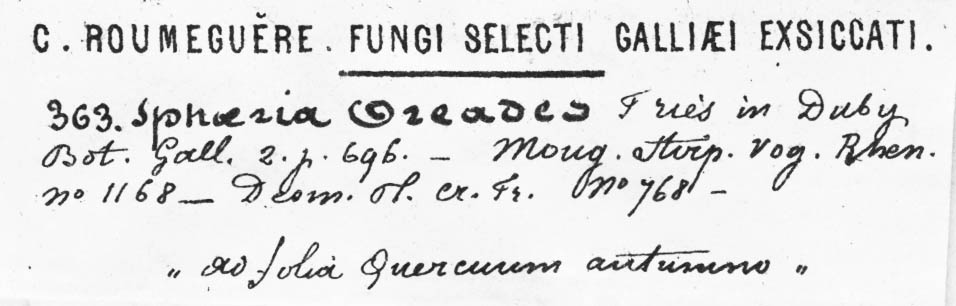 C. ROUMEGUĚRE. FUNGI SELECTI GALLIÆI EXSICCATI.
363. Sphæria Oreades Friés in Duby
Bot. Gall. 2. p. 696. — Moug. Stirp. Vog. Rhen.
no 1168 — Desm. Pl. cr. Fr. No 768 —
„ ad folia Quercuum autumno „